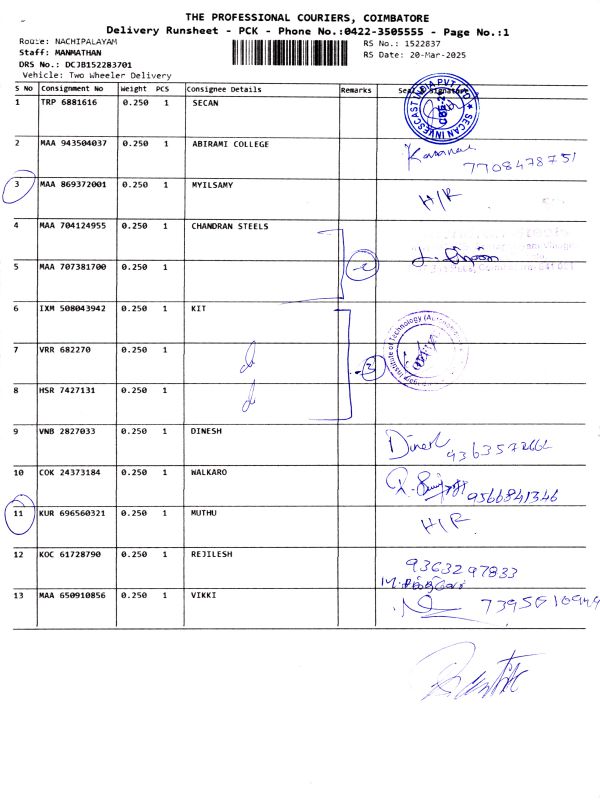 THE PROFESSIONAL COURIERS, COIMBATORE
Delivery Runsheet - PCK - Phone No.:0422-3505555 - Page No.:1
Route: NACHIPALAYAM
RS No.: 1522837
Staff: MANMATHAN
RS Date: 20-Mar-2025
DRS No.: DCJB152283701
Vehicle: Two Wheeler Delivery
S No Consignment No Weight PCS Consignee Details Remarks
1 TRP 6881616 0.250 1 SECAN
SECAN INVESCAST INDIA PVT LTD
2 MAA 943504037 0.250 1 ABIRAMI COLLEGE
7708478751
3 MAA 869372001 0.250 1 MYILSAMY H/R
4 MAA 704124955 0.250 1 CHANDRAN STEELS
5 MAA 707381700 0.250 1
6 IXM 508043942 0.250 1 KIT
7 VRR 682270 0.250 1 do
3
8 HSR 7427131 0.250 1 do
9 VNB 2827033 0.250 1 DINESH Dinesh
10 COK 24373184 0.250 1 WALKARO
9566841346
11 KUR 696560321 0.250 1 MUTHU H/R
12 KOC 61728790 0.250 1 REJILESH 9363297833
13 MAA 650910856 0.250 1 VIKKI